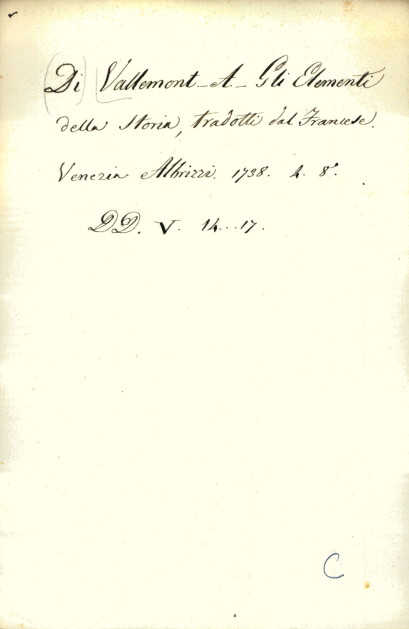 Di Vallemont - A - Gli Elementi
della Storia, tradotti dal Francese.
Venezia Albrizzi. 1738. 4. 8°.
DD. V. 14...17.
C